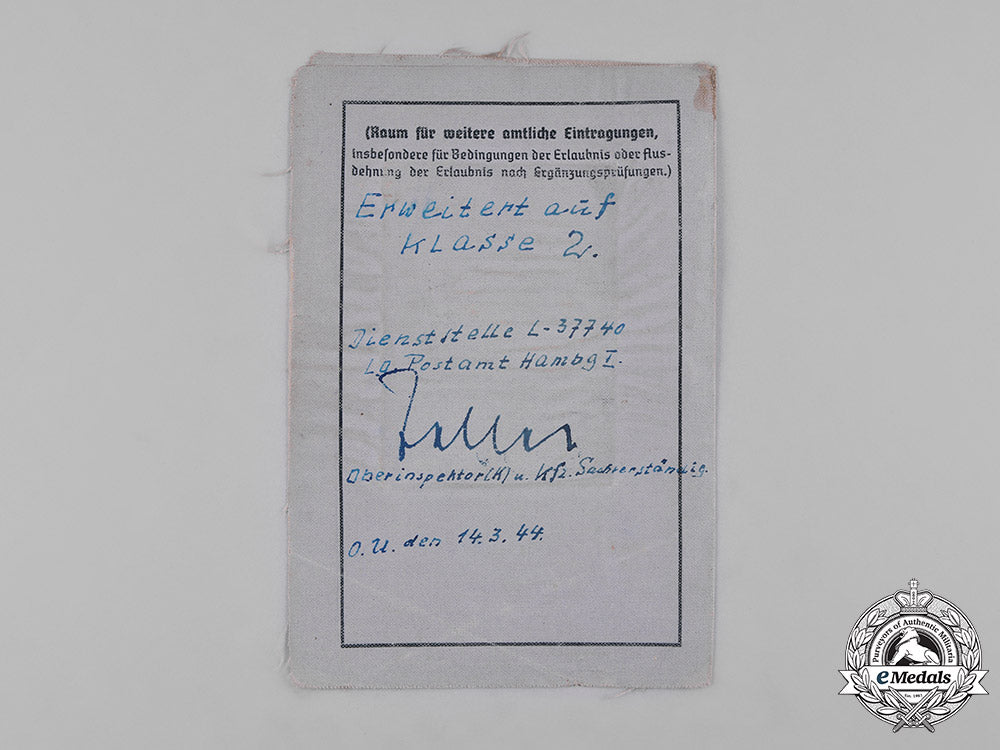 (Raum für weitere amtliche Eintragungen,
insbesondere für Bedingungen der Erlaubnis oder Aus-
dehnung der Erlaubnis nach Ergänzungsprüfungen.)
Erweitert auf
Klasse 2.
Dienststelle L-37740
Lg. Postamt Hambg I.
Oberinspektor(K) u. Kfz. Sachverständig.
O.U. den 14.3.44.
Purveyors of Authentic Militaria
eMedals